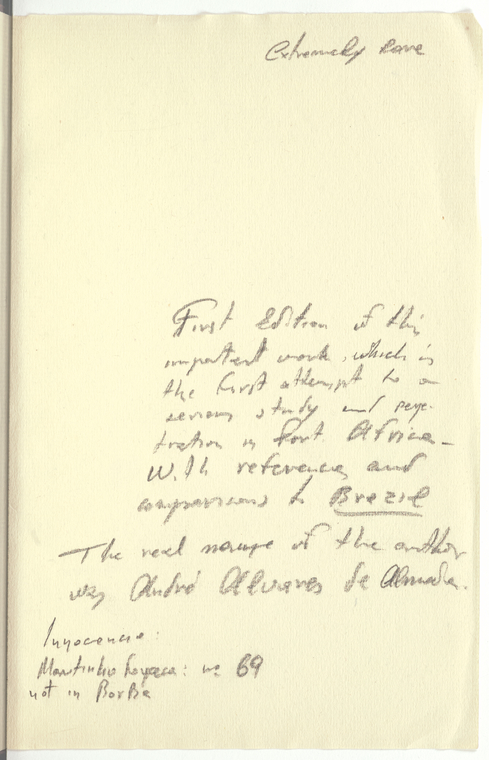 Extremely rare
First Edition of this
important work, which is
the first attempt to a
serious study and pene-
tration in Port. Africa -
With references and
comparisons to Brezil
The real name of the author
was André Alvares de Almada.
Innocencio:
Martinho Fonseca: nº 69
not in Borba